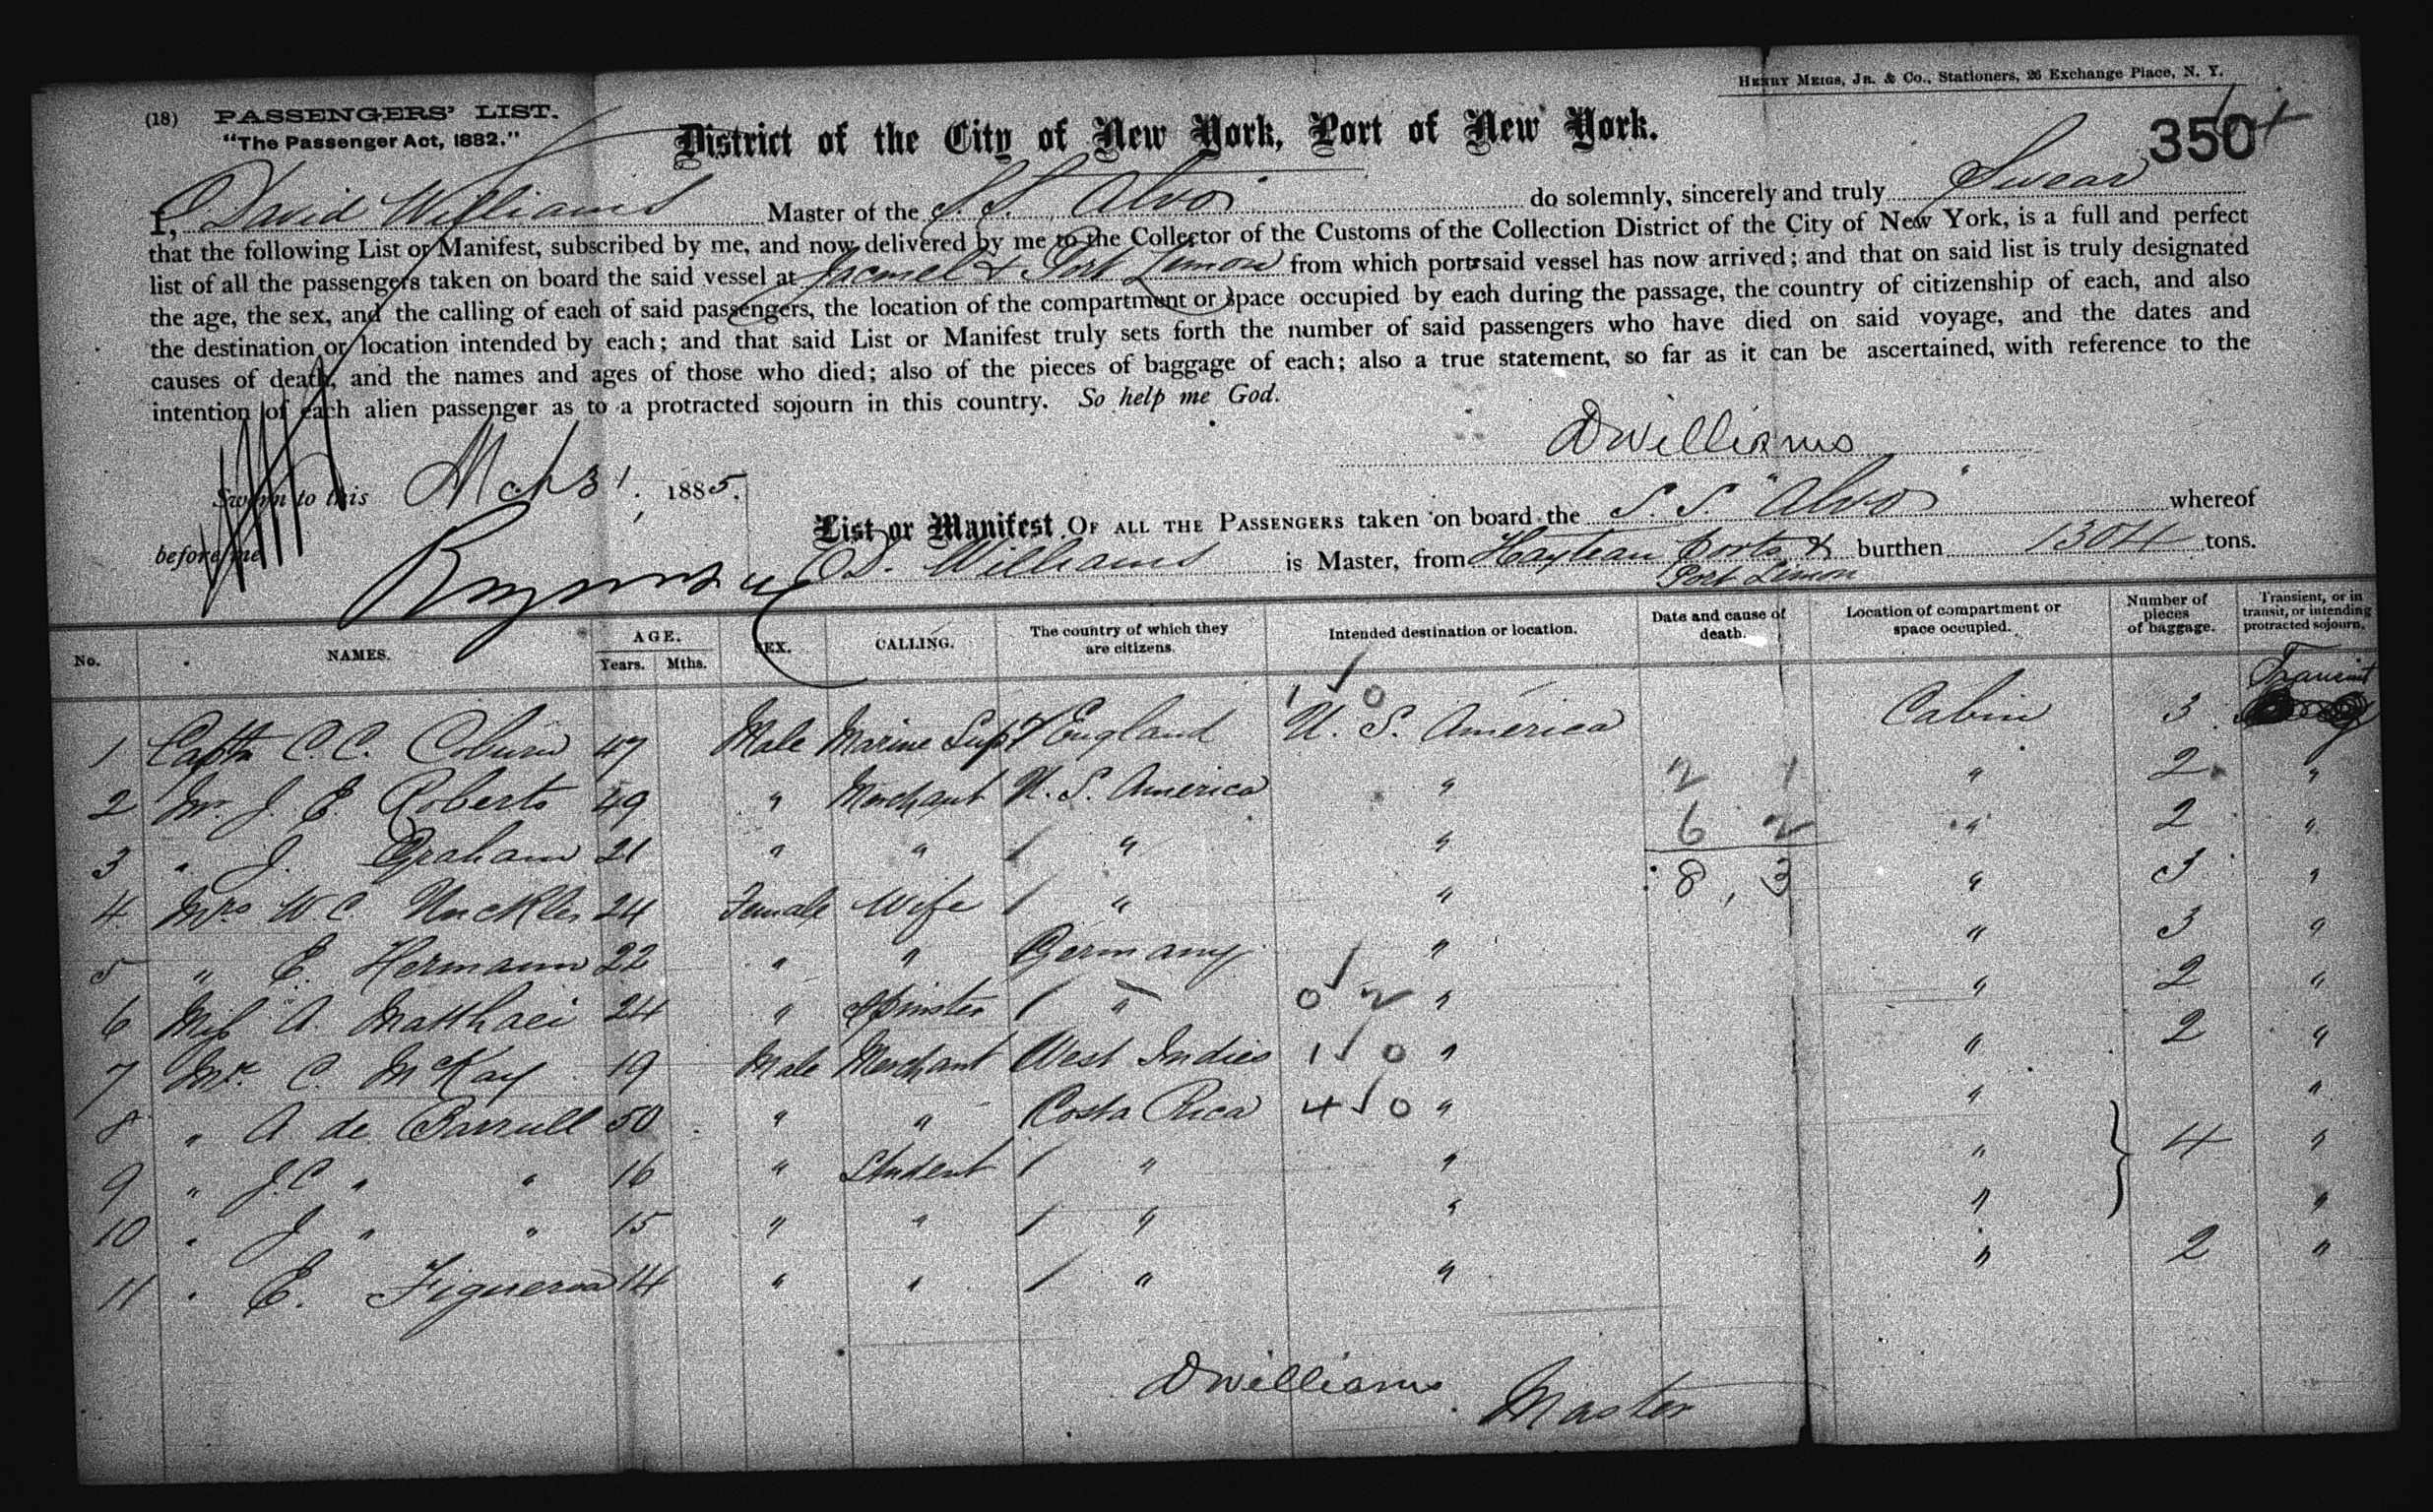 HENRY MEIGS, JR. & CO., Stationers, 26 Exchange Place, N. Y.
(18) PASSENGERS' LIST.
"The Passenger Act, 1882."
District of the City of New York, Port of New York.
350
I, David Williams Master of the S. S. Alvo do solemnly, sincerely and truly Swear
that the following List or Manifest, subscribed by me, and now delivered by me to the Collector of the Customs of the Collection District of the City of New York, is a full and perfect
list of all the passengers taken on board the said vessel at Jacmel & Port Limon from which ports said vessel has now arrived; and that on said list is truly designated
the age, the sex, and the calling of each of said passengers, the location of the compartment or space occupied by each during the passage, the country of citizenship of each, and also
the destination or location intended by each; and that said List or Manifest truly sets forth the number of said passengers who have died on said voyage, and the dates and
causes of death, and the names and ages of those who died; also of the pieces of baggage of each; also a true statement, so far as it can be ascertained, with reference to the
intention of each alien passenger as to a protracted sojourn in this country. So help me God.
DWilliams
Sworn to this Mch 31. 1885.
before me
List or Manifest OF ALL THE PASSENGERS taken on board the S. S. "Alvo" whereof
D. Williams is Master, from Haytean Ports & burthen 1304 tons.
Port Limon
No. NAMES. AGE. Years. Mths. SEX. CALLING. The country of which they are citizens. Intended destination or location. Date and cause of death. Location of compartment or space occupied. Number of pieces of baggage. Transient, or in transit, or intending protracted sojourn.
1 Captn C. C. Coburn 47 Male Marine Supt England 1 0 U. S. America Cabin 3 Transint
2 Mr. J. E. Roberts 49 " Merchant U. S. America " 2 1 " 2 "
3 " J. Graham 21 " " / " " 6 2 " 2 "
4 Mrs W. C. Nuckles 24 Female Wife / " " 8 , 3 " 3 "
5 " E. Hermann 22 " " Germany " " 3 "
6 Miss A. Matthaei 24 " Spinster / " 0 2 " " 2 "
7 Mr. C. McKay 19 Male Merchant West Indies 1 0 " " 2 "
8 " A. de Barruell 50 " " Costa Rica 4 0 " " "
9 " J. C. " " 16 " Student / " " " } 4 "
10 " J " " 15 " " / " " " "
11 " E. Figueroa 14 " " / " " " 2 "
DWilliams. Master